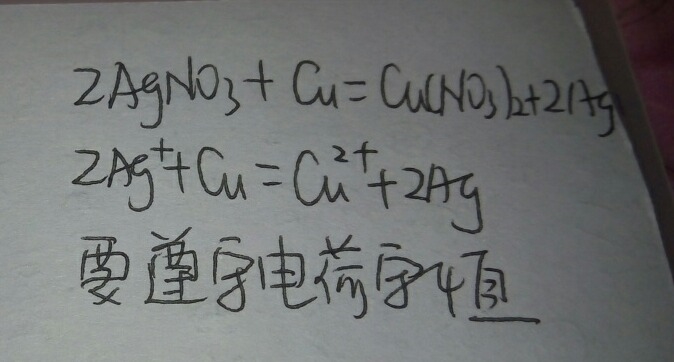 2AgNO₃+Cu=Cu(NO₃)₂+2Ag
2Ag⁺+Cu=Cu²⁺+2Ag
要遵守电荷守恒